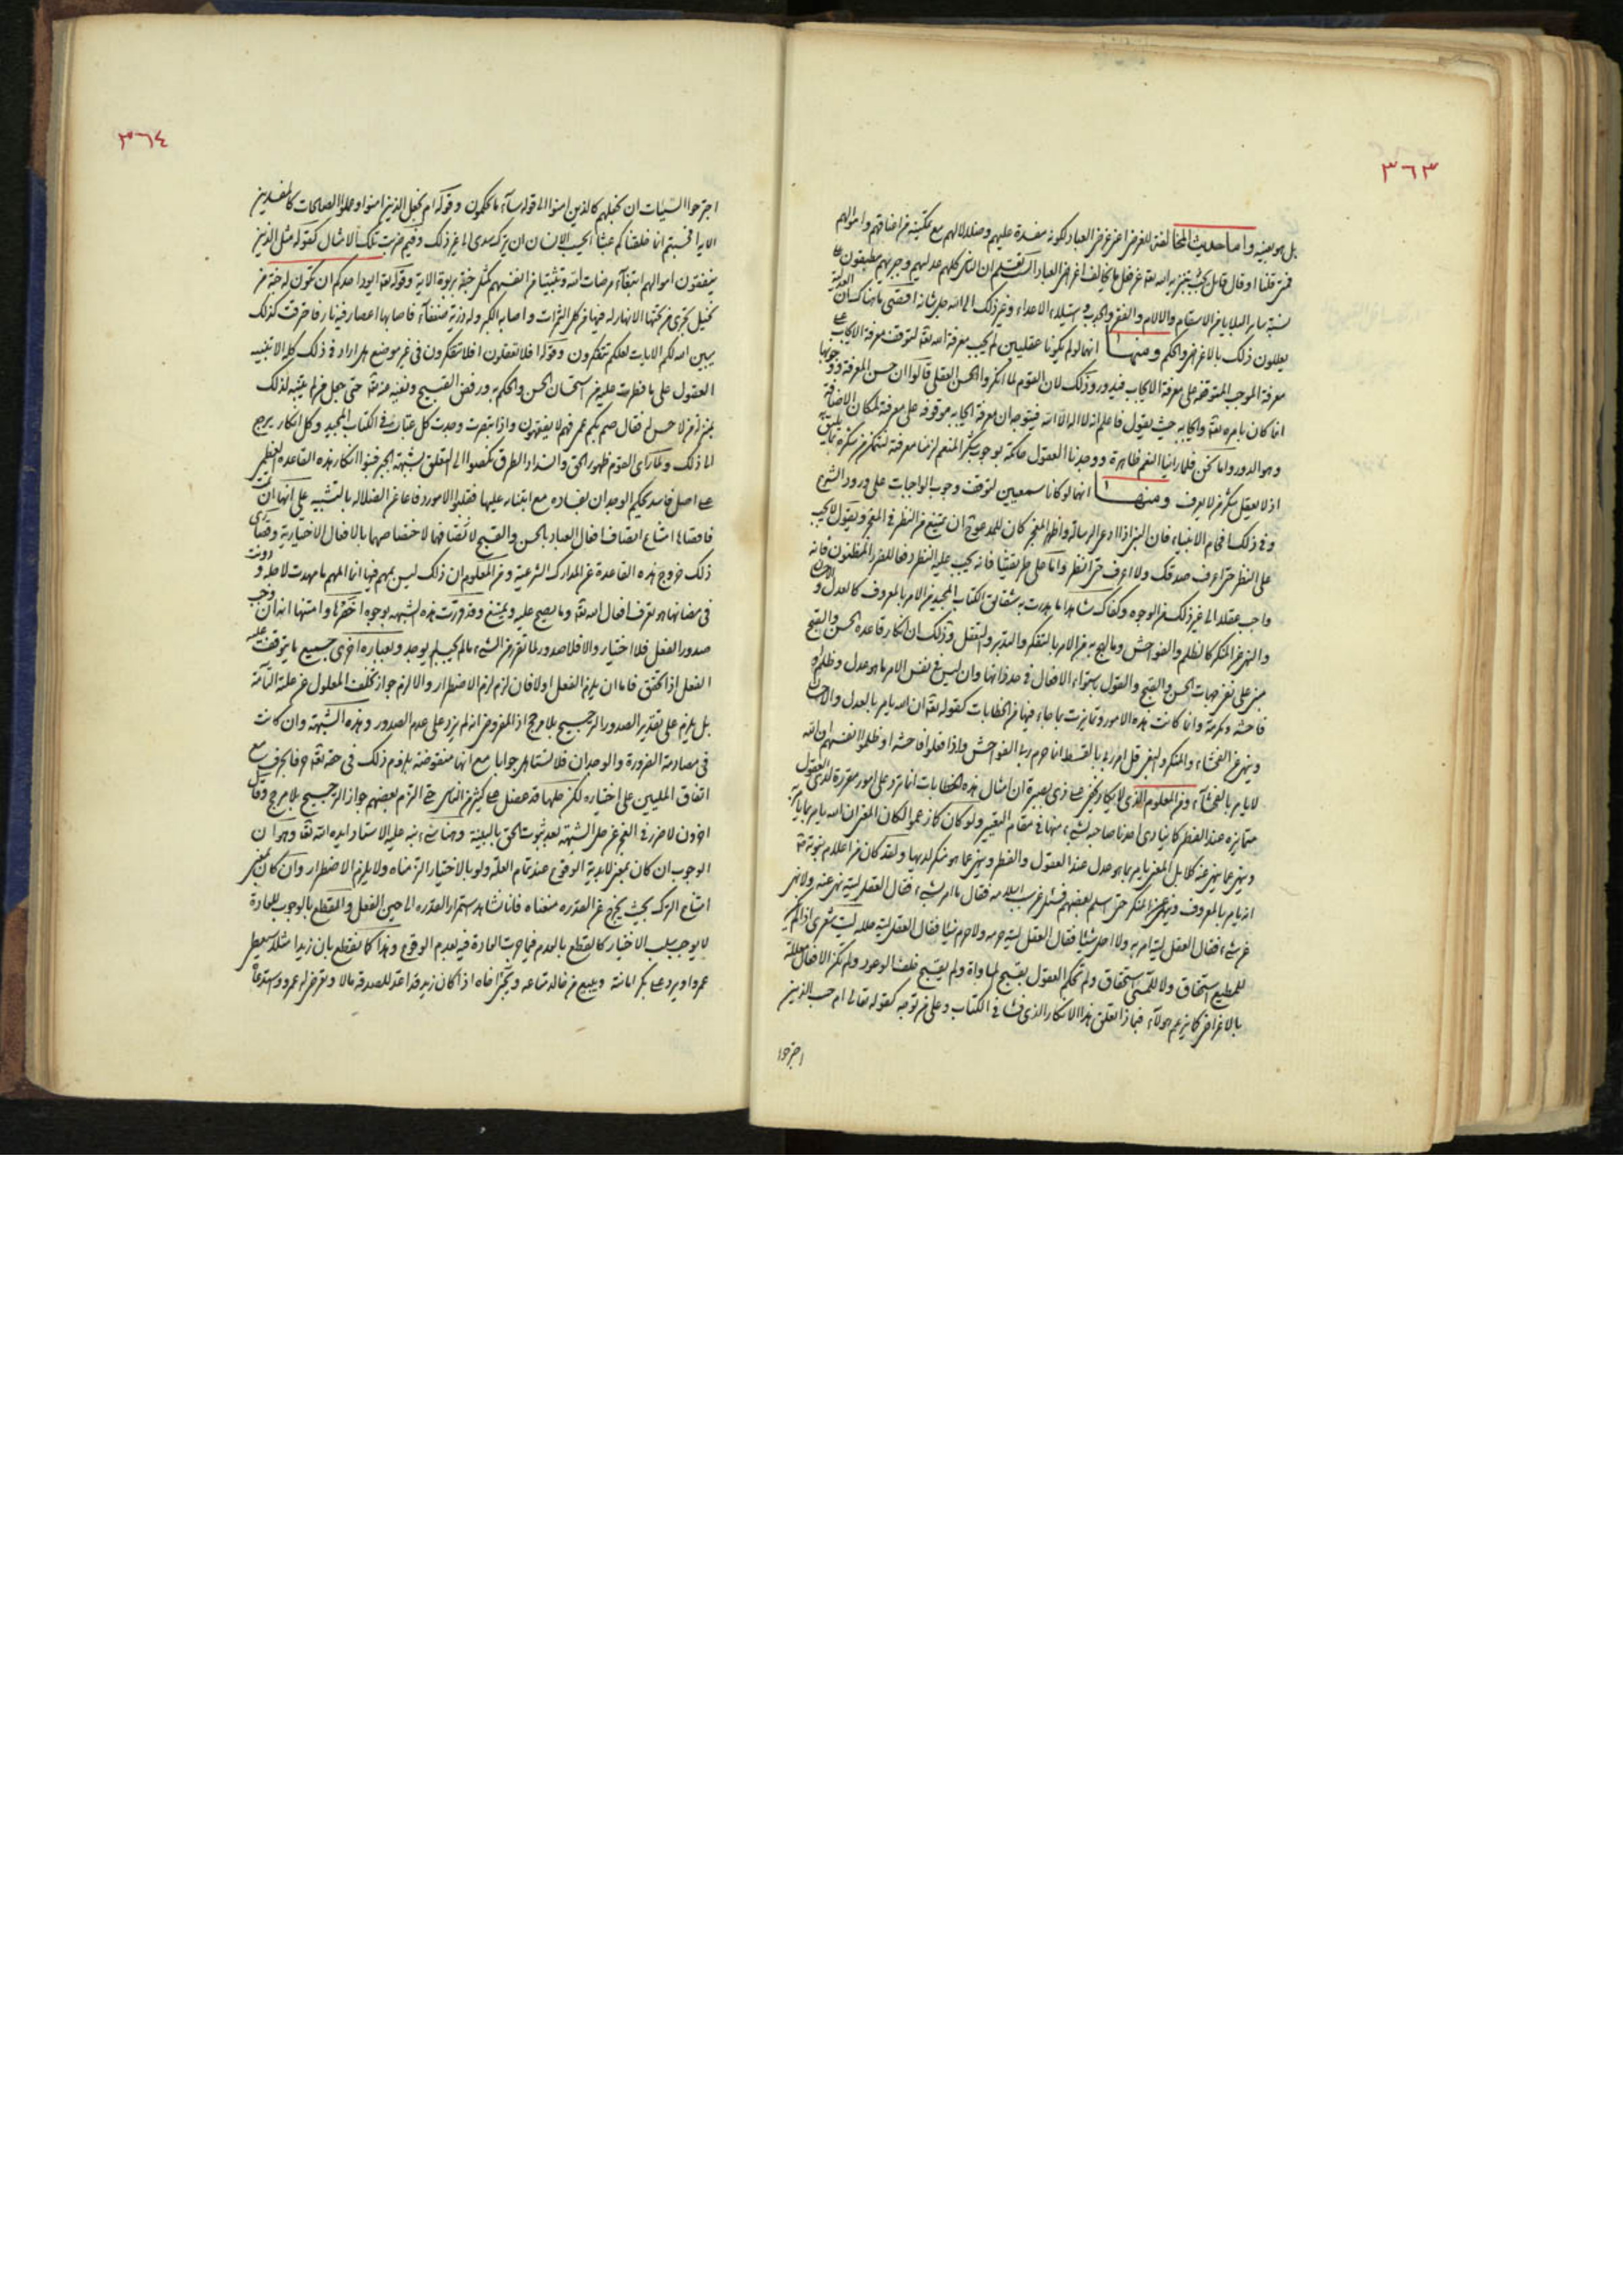 ٣٦٣
بل هو بعينه واما حديث المخالفة للغرض اعنى غرض العباد لكونه مفسدة عليهم وضلالا لهم مع تمكينه من اعناقهم واموالهم
فمتى قلنا او قال قائل يجب تنزيه الله تعالى عن فعل ما يخالف اغراض العباد الست تعلم ان الناس كلهم عدليهم وجبريهم مطبقون على
نسبة ساير البلايا من الاسقام والالام والفقر والجدب واستيلاء الاعداء وغير ذلك الى الله جل شانه اقصى ما هناك ان العدلية
يعللون ذلك بالاغراض والحكم ومنها انهما لو لم يكونا عقليين لم يجب معرفة الله تعالى لتوقف معرفة الايجاب على
معرفة الموجب المتوقفة على معرفة الايجاب فيدور وذلك لان القوم لما انكروا الحسن العقلى قالوا ان حسن المعرفة ووجوبها
انما كان بامره تعالى وايجابه حيث يقول فاعلم انه لا اله الا الله فيتوجه ان معرفة ايجابه موقوفة على معرفة لمكان الاضافة
وهو الدور واما نحن فلما راينا النعم ظاهرة ووجدنا العقول حاكمة بوجوب شكر المنعم لزمنا معرفته لنتمكن من شكره بما يليق به
اذ لا يعقل شكر من لا يعرف ومنها انهما لو كانا سمعيين لتوقف وجوب الواجبات على ورود الشرع
وفى ذلك افحام الانبياء فان النبى اذا ادعى الرسالة واظهر المعجز كان للمدعو ان يمتنع من النظر فى المعجز ويقول لا يجب
على النظر حتى اعرف صدقك ولا اعرف حتى انظر واما على طريقتنا فانه يجب عليه النظر دفعا للضرر المظنون فانه
واجب عقلا الى غير ذلك من الوجوه وكفاك شاهدا ما هدرت به شقاشق الكتاب المجيد من الامر بالمعروف كالعدل والاحسان
والنهى عن المنكر كالظلم والفواحش وما لهج به من الامر بالتفكر والتدبر والتعقل وذلك ان انكار قاعدة الحسن والقبح
مبنى على نفى جهات الحسن والقبح والقول باستواء الافعال فى حد ذاتها وان ليس فى نفس الامر ما هو عدل وظلم او
فاحشة ومكرمة وانما كانت هذه الامور وتمايزت بما جاء فيها من الخطابات كقوله تعالى ان الله يامر بالعدل والاحسان
وينهى عن الفحشاء والمنكر والبغى قل امر ربى بالقسط انما حرم ربى الفواحش واذا فعلوا فاحشة او ظلموا انفسهم ان الله
لا يامر بالفحشاء ومن المعلوم الذى لا يكاد يخفى على ذى بصيرة ان امثال هذه الخطابات انما ترد على امور مقررة لدى العقول
متمايزة عند الفطر كما ينادى احدنا صاحبه بشىء منها فى مقام التعيير ولو كان كما زعموا لكان المعنى ان الله يامر بما يامر به
وينهى عما ينهى عنه كلا بل المعنى يامر بما هو عدل عند العقول والفطر وينهى عما هو منكر لديها ولقد كان من اعلام نبوته ص
انه يامر بالمعروف وينهى عن المنكر حتى اسلم بعضهم فسئل عن سبب اسلامه فقال ما امر بشىء فقال العقل ليته نهى عنه ولا نهى
عن شىء فقال العقل ليته امر به ولا احل شيئا فقال العقل ليته حرمه ولا حرم شيئا فقال العقل ليته حلله ليت شعرى اذا لم يكن
للمطيع استحقاق ولا للمسىء استحقاق ولم تحكم العقول بقبح المساواة ولم يقبح خلف الوعد ولم تكن الافعال معللة
بالاغراض كما يزعم هؤلاء فبماذا تعلق هذا الانكار الذى فشا فى الكتاب وعلى من توجه كقوله تعالى ام حسب الذين
اجترحوا
٣٦٤
اجترحوا السيئات ان نجعلهم كالذين امنوا الى قوله ساء ما يحكمون وقوله ام نجعل الذين امنوا وعملوا الصالحات كالمفسدين
الاية افحسبتم انما خلقناكم عبثا ايحسب الانسان ان يترك سدى الى غير ذلك وفيم ضربت تلك الامثال كقوله مثل الذين
ينفقون اموالهم ابتغاء مرضات الله وتثبيتا من انفسهم كمثل جنة بربوة الاية وقوله تعالى ايود احدكم ان تكون له جنة من
نخيل تجرى من تحتها الانهار له فيها من كل الثمرات واصابه الكبر وله ذرية ضعفاء فاصابها اعصار فيه نار فاحترقت كذلك
يبين الله لكم الايات لعلكم تتفكرون وقوله افلا تعقلون افلا تتفكرون فى غير موضع هل اراد فى ذلك كله الا تنبيه
العقول على ما فطرت عليه من استحسان الحسن والحكم به ورفض القبيح ونفيه عنه تعالى حتى جعل من لم يتنبه لذلك
بمنزلة من لا حس له فقال صم بكم عمى فهم لا يفقهون واذا تبصرت وجدت كل عتاب وقع فى الكتاب المجيد وكل انكار يرجع
الى ذلك ولما راى القوم ظهور الحق وانسداد الطرق نكصوا الى التعلق بشبهة الجبر فبنوا انكار هذه القاعدة العظيمة
على اصل فاسد يحكم الوجدان بفساده مع ابتنائه عليها فقلبوا الامور دفاعا عن الضلالة بالتشبيه على انها ان تمت
فاقصاها امتناع اتصاف افعال العباد بالحسن والقبح لا تصافهما لاختصاصهما بالافعال الاختيارية وقصارى
ذلك خروج هذه القاعدة عن المدارك الشرعية ومن المعلوم ان ذلك ليس بمهم فيها انما المهم ما مهدت لاجله ودونت
فى مضانها هو تعرف افعال الله تعالى وما يصح عليه ويمتنع وقد قررت هذه الشبهة بوجوه اخصرها وامتنها انه ان وجب
صدور الفعل فلا اختيار والا فلا صدور لما تقرر من ان الشىء ما لم يجب لم يوجد وبعبارة اخرى جميع ما يتوقف عليه
الفعل اذا تحقق فاما ان يلزم الفعل اولا فان لزم لزم الاضطرار والا لزم جواز تخلف المعلول عن علته التامة
بل يلزم على تقدير الصدور الترجيح بلا مرجح اذ المفروض انه لم يزد على عدم الصدور وهذه الشبهة وان كانت
فى مصادمة الضرورة والوجدان فلا تستاهل جوابا مع انها منقوضة بلزوم ذلك فى حقه تعالى فما يجرى مع
اتفاق المليين على اختياره لكن حلها قد عضل على كثير من الناس حتى التزم بعضهم جواز الترجيح بلا مرجح وقال
اخرون لا ضرر فى العجز عن حل الشبهة بعد ثبوت الحق بالبينة وهنا شىء نبه عليه الاستاد ايده الله تعالى وهو ان
الوجوب ان كان بمعنى لابدية الوقوع عند تمام العلة ولو بالاختيار التزمناه ولا يلزم الاضطرار وان كان بمعنى
امتناع الترك بحيث يخرج عن القدرة منعناه فانا نشاهد استمرار القدرة الى حين الفعل والقطع بالوجوب للعادة
لا يوجب سلب الاختيار كالقطع بالعدم فيما جرت العادة فيه بعدم الوقوع وهذا كما نقطع بان زيدا مثلا سيعطى
عمروا ويرد على بكر امانته ويبيع من خالد متاعه اذا كان زيد قد اعد للصدقة مالا وتعرض له عمرو واستدعاه